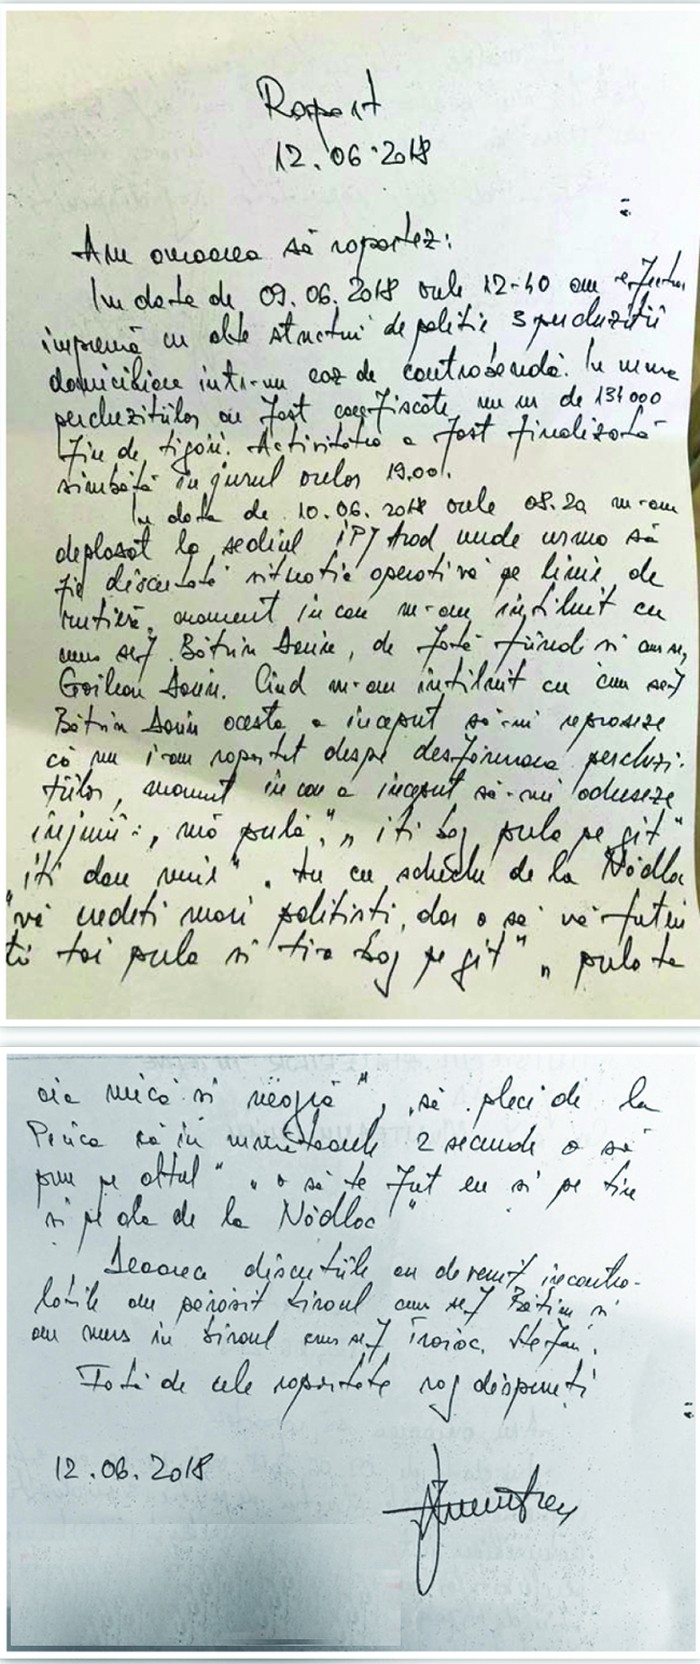 Raport
12.06.2018
Am onoarea să raportez:
In data de 09.06.2018 orele 12-40 am efectuat
impreună cu alte structuri de politie 3 perchezitii
domiciliare intr-un caz de contrabandă. In urma
perchezitiilor au fost confiscate un nr de 134000
fire de tigari. Activitatea a fost finalizată
simbătă in jurul orelor 19.00.
In data de 10.06.2018 orele 08.20 m-am
deplasat la sediul IPJ Arad unde urma să
fie discutată situatia operativă pe linie de
rutieră, moment in care m-am intilnit cu
Bătrin Sorin, de fată fiind si
Goilean Sorin. Cind m-am intilnit cu cms sef
Bătrin Sorin acesta a inceput să-mi reproseze
că nu i-am raportat despe desfăsurarea perchezi-
tiilor, moment in care a inceput să-mi aduseze
injurii: "mă pulă", "iti bag pula pe git"
iti dau muie". Tu cu schiclu de la Nădlac
"vă credeti mari politisti, dar o să vă futeti
tai pula si bag pe git" "pula ta
aia mică si neagră", "să pleci de la
Peica că in următoarele 2 secunde o să
pun pe altul" "o să te fut eu si pe tine
si pe ala de la Nădlac"
Deoarea discutiile au devenit incontro-
labile am părăsit biroul cms sef Bătrin si
am mers in biroul cms sef Traioc. Stefan.
Fată de cele raportate rog dispuneti
12.06.2018